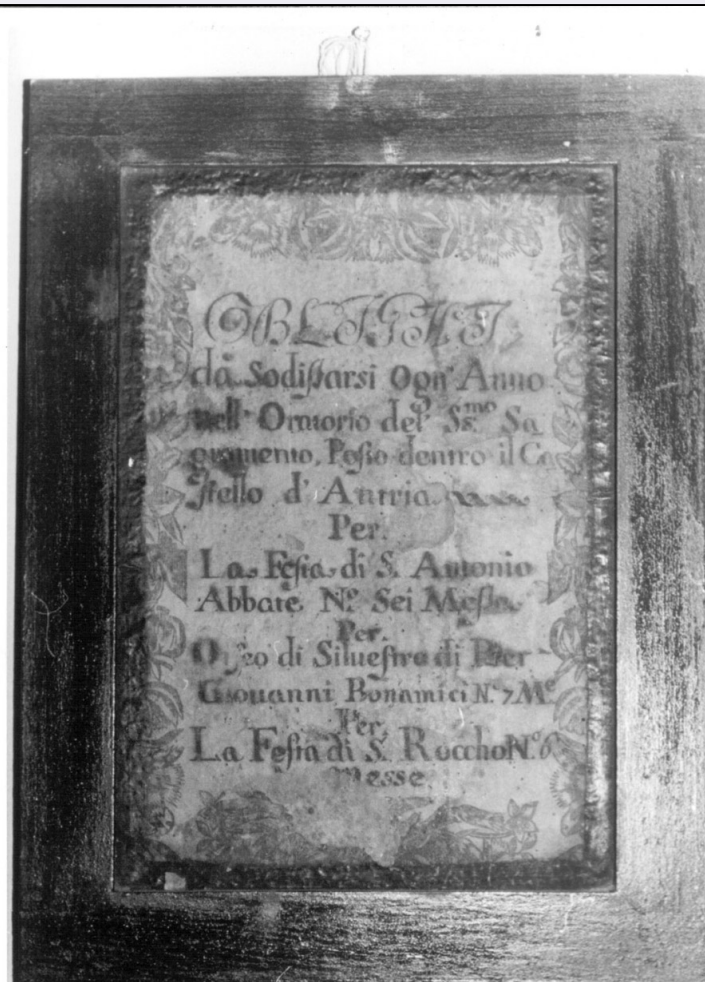 OBLIGHI
da Sodisfarsi Ogn' Anno
nell' Oratorio del SS.mo Sa
gramento, Posto dentro il Ca
stello d' Antria
Per.
La Festa di S. Antonio
Abbate N.o Sei Messe
Per.
di Siluestro di Pier
Giouanni Bonamici N.o 7 M.e
Per.
La Festa di S. Roccho N.o 6
Messe